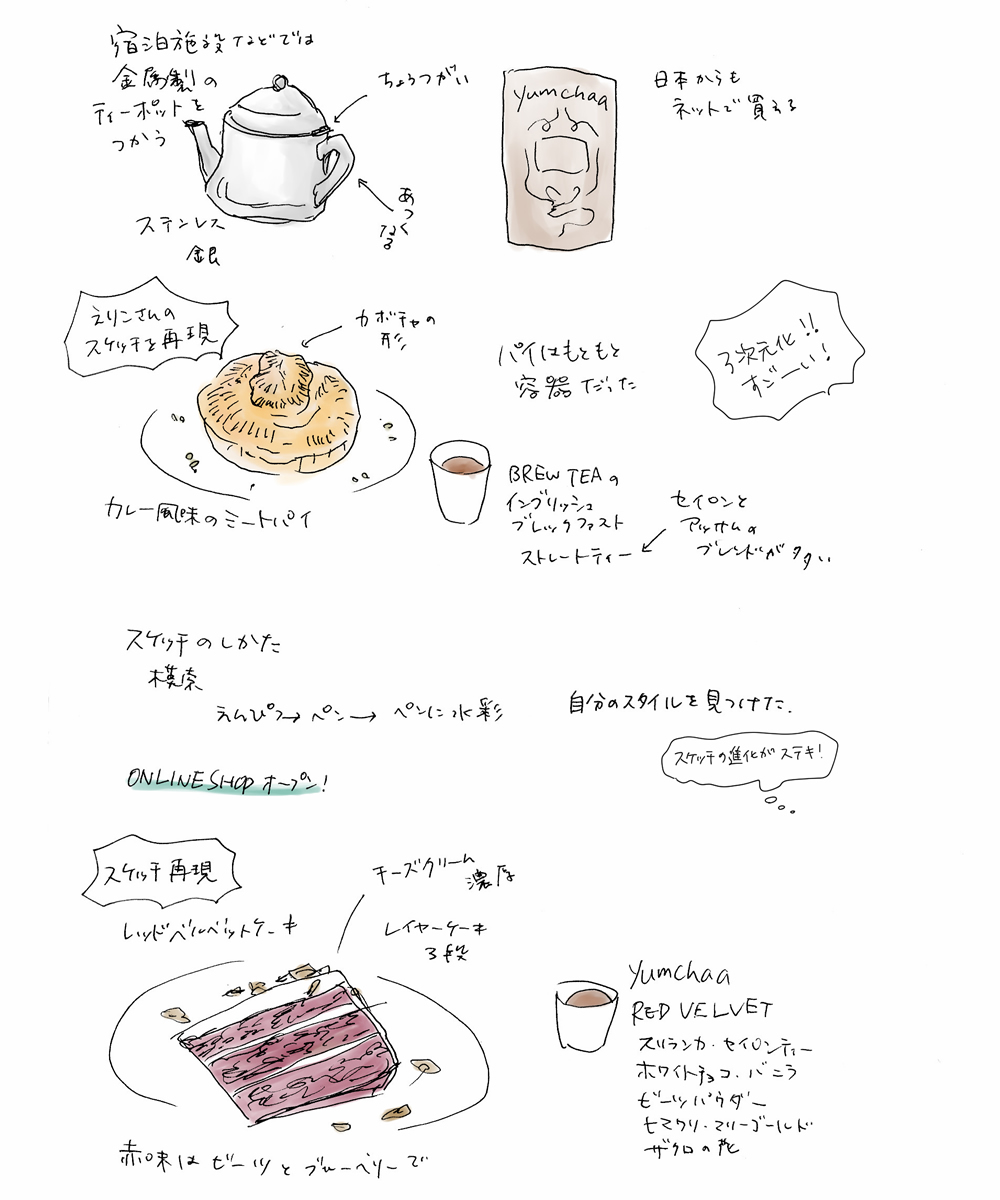 宿泊施設などでは
金属製の
ティーポットを
つかう
ちょうつがい
あつく
なる
ステンレス
銀
yumchaa
日本からも
ネットで買える
えりンさんの
スケッチを再現
カボチャの
形
カレー風味のミートパイ
パイはもともと
容器だった
3次元化!!
すごーい!
BREW TEAの
イングリッシュ
ブレックファスト
ストレートティー
セイロンと
アッサムの
ブレンドが多い
スケッチのしかた
模索
えんぴつ→ペン→ペンに水彩
自分のスタイルを見つけた.
スケッチの進化がステキ!
ONLINE SHOP オープン!
スケッチ再現
レッドベルベットケーキ
チーズクリーム
濃厚
レイヤーケーキ
3段
赤味はビーツとブルーベリーで
yumchaa
RED VELVET
スリランカ・セイロンティー
ホワイトチョコ・バニラ
ビーツパウダー
ヒマワリ・マリーゴールド
ザクロの花